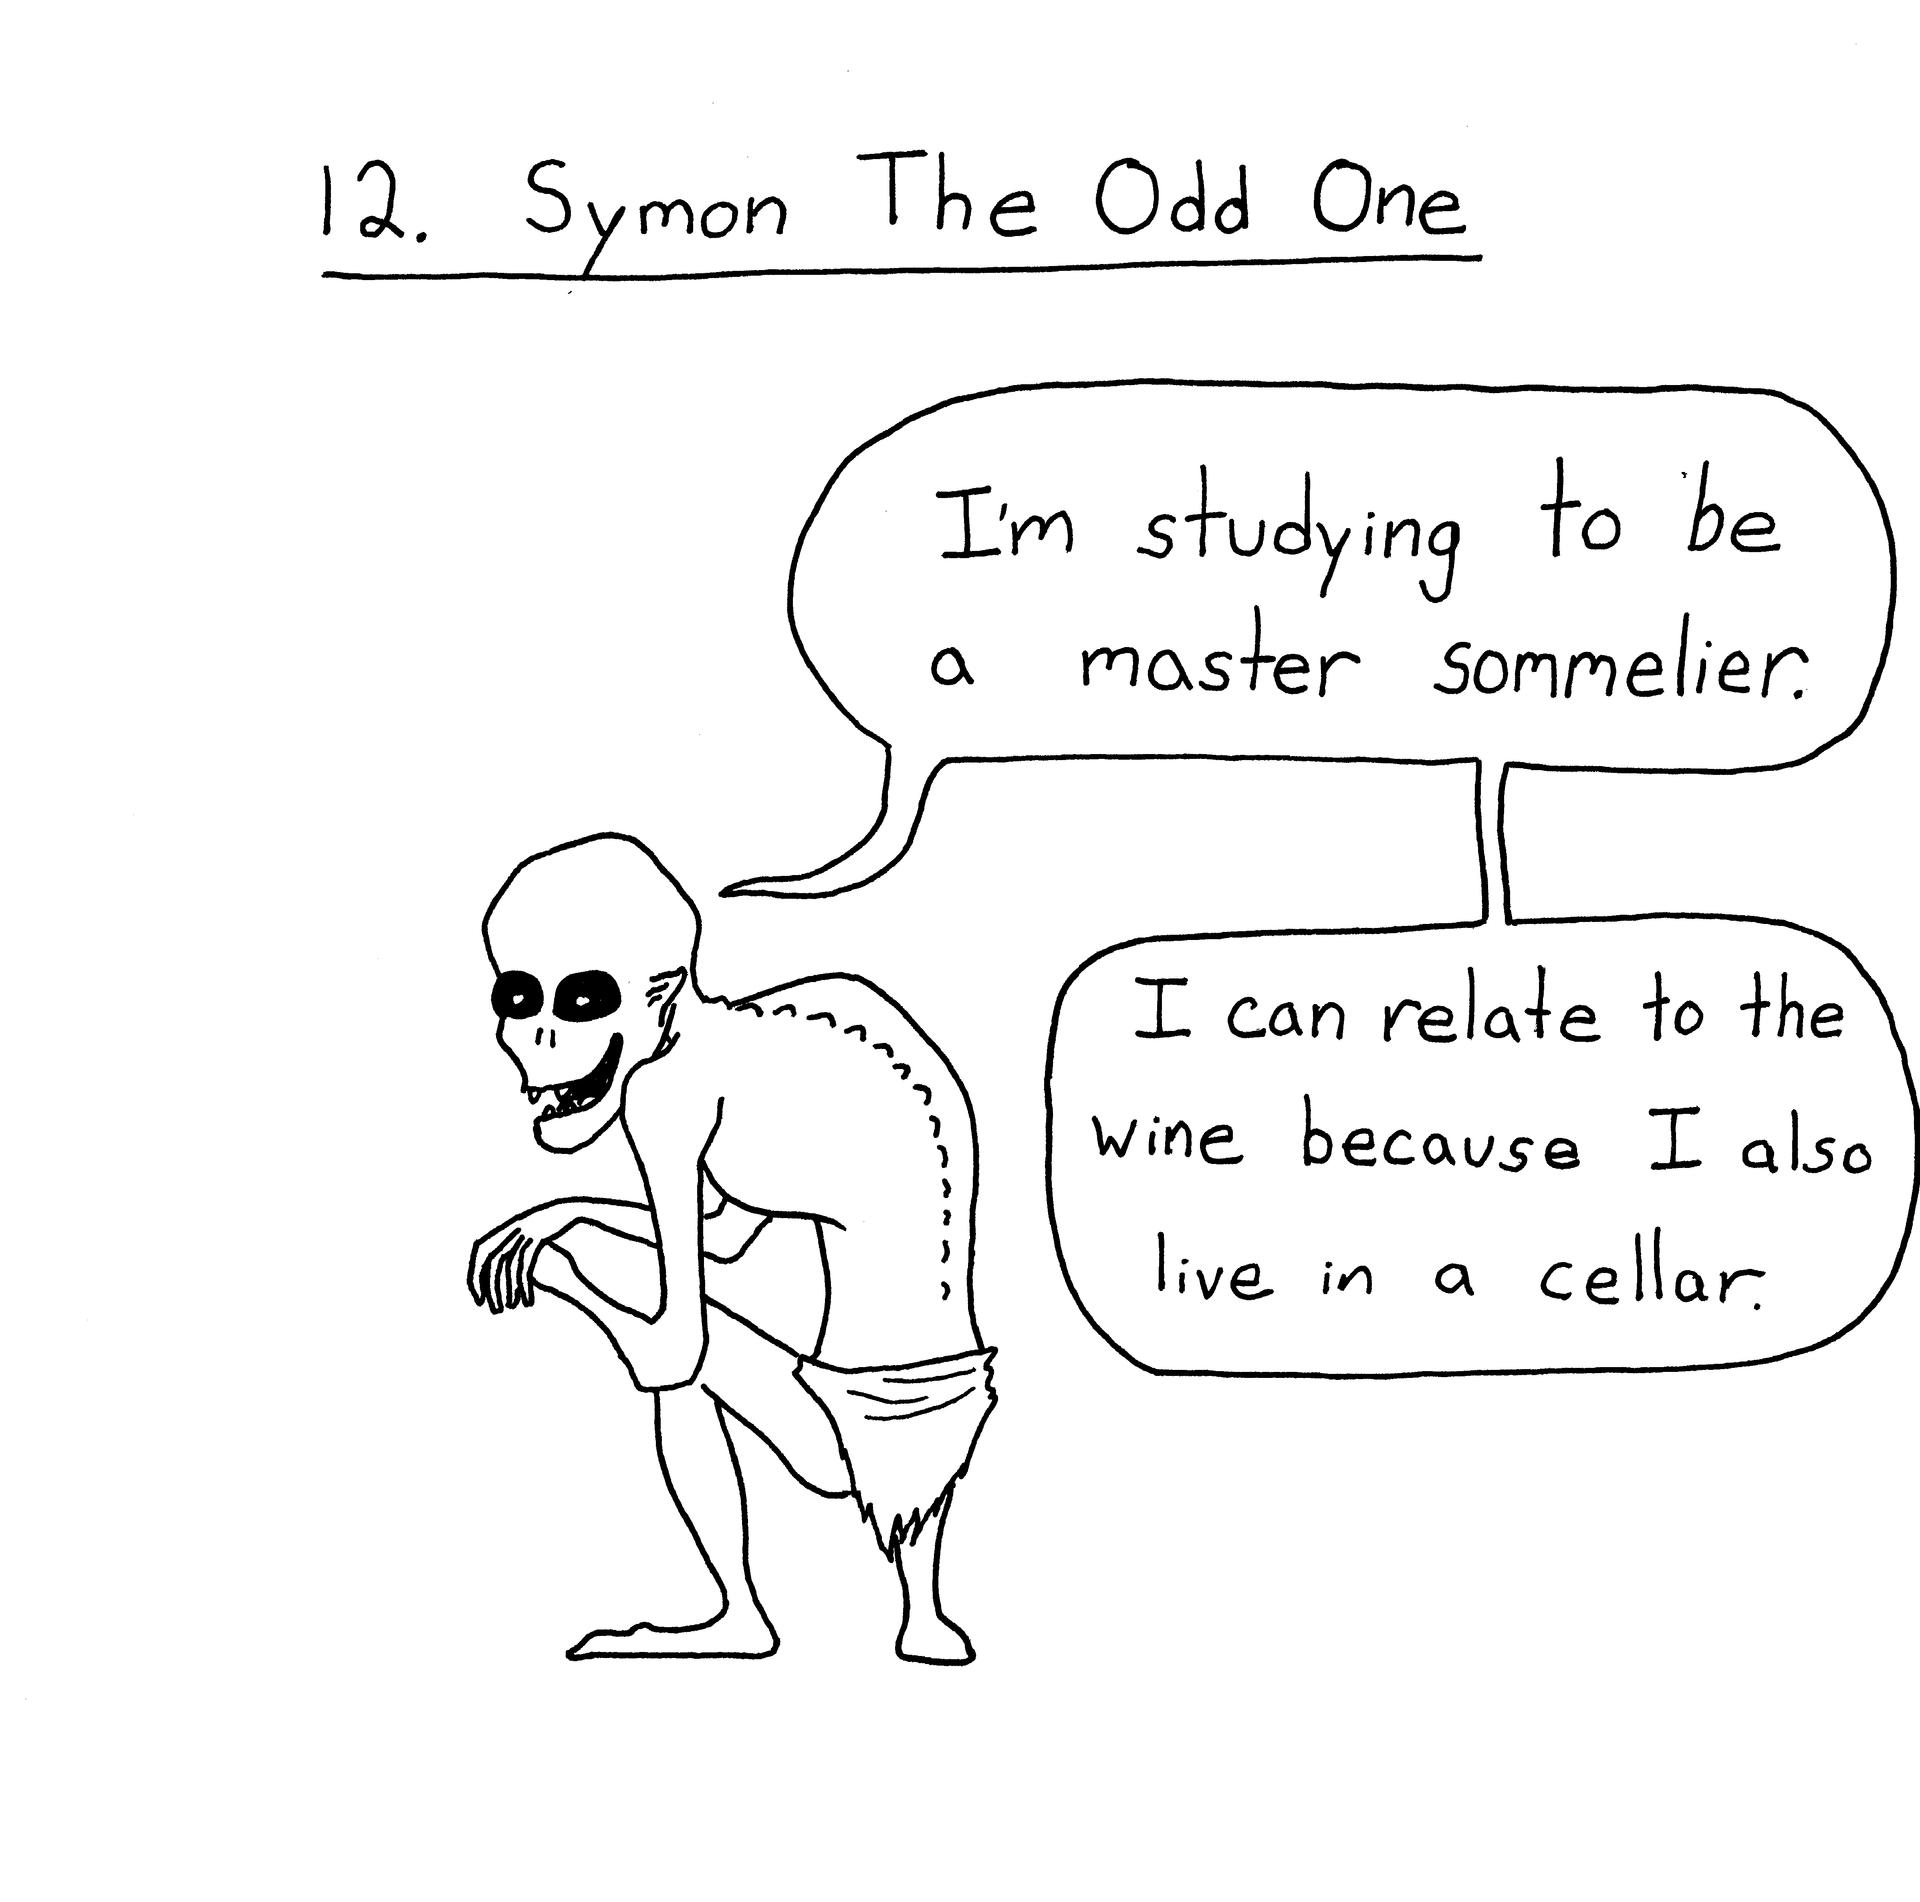 12. Symon The Odd One
I'm studying to be
a master sommelier.
I can relate to the
wine because I also
live in a cellar.